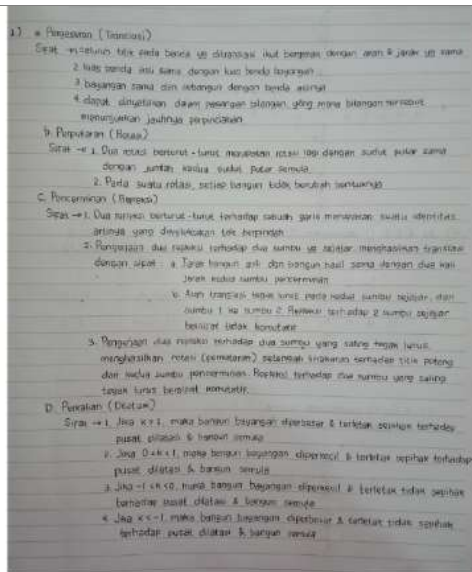 2) a. Pergeseran (Translasi)
Sifat → 1. seluruh titik pada benda yg ditranslasi ikut bergeser dengan arah & jarak yg sama
2. luas benda asli sama dengan luas benda bayangan
3. bayangan sama dan sebangun dengan benda aslinya
4. dapat dinyatakan dalam pasangan bilangan, yang mana bilangan tersebut
menunjukkan jauhnya perpindahan
b. Perputaran (Rotasi)
Sifat → 1. Dua rotasi berturut-turut merupakan rotasi lagi dengan sudut putar sama
dengan jumlah kedua sudut putar semula
2. Pada suatu rotasi, setiap bangun tidak berubah bentuknya
C. Pencerminan (Refleksi)
Sifat → 1. Dua refleksi berturut-turut terhadap sebuah garis merupakan suatu identitas,
artinya yang direfleksikan tak berpindah
2. Pengerjaan dua refleksi terhadap dua sumbu yg sejajar menghasilkan translasi
dengan sifat : a. Jarak bangun asli dan bangun hasil sama dengan dua kali
jarak kedua sumbu pencerminan
b. Arah translasi tegak lurus pada kedua sumbu sejajar, dari
sumbu 1 ke sumbu 2. Refleksi terhadap 2 sumbu sejajar
bersifat tidak komutatif
3. Pengerjaan dua refleksi terhadap dua sumbu yang saling tegak lurus,
menghasilkan rotasi (pemutaran) setengah lingkaran terhadap titik potong
dari kedua sumbu pencerminan. Refleksi terhadap dua sumbu yang saling
tegak lurus bersifat komutatif.
D. Perkalian (Dilatasi)
Sifat → 1. Jika k > 1, maka bangun bayangan diperbesar & terletak sepihak terhadap
pusat dilatasi & bangun semula
2. Jika 0 < k < 1, maka bangun bayangan diperkecil & terletak sepihak terhadap
pusat dilatasi & bangun semula
3. Jika -1 < k < 0, maka bangun bayangan diperkecil & terletak tidak sepihak
terhadap pusat dilatasi & bangun semula
4. Jika k < -1, maka bangun bayangan diperbesar & terletak tidak sepihak
terhadap pusat dilatasi & bangun semula